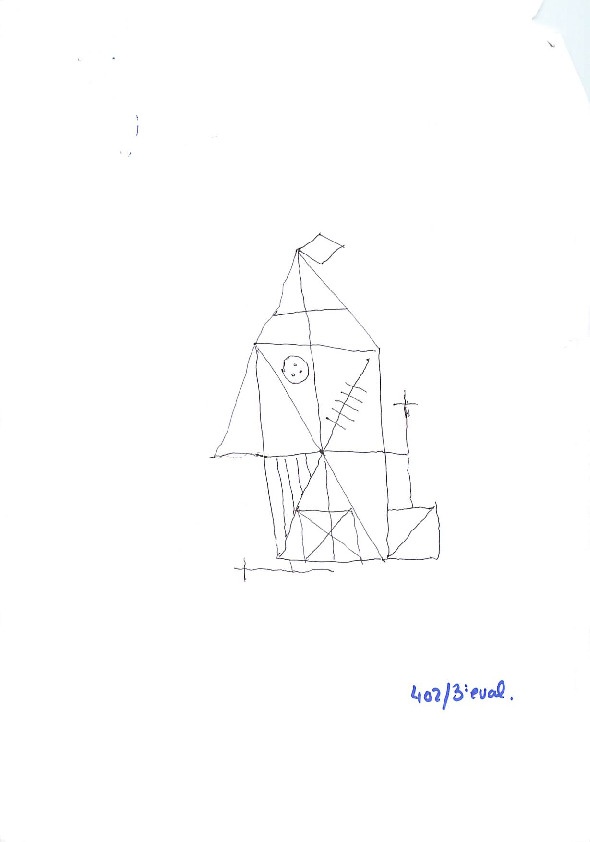 402/3ªeval.